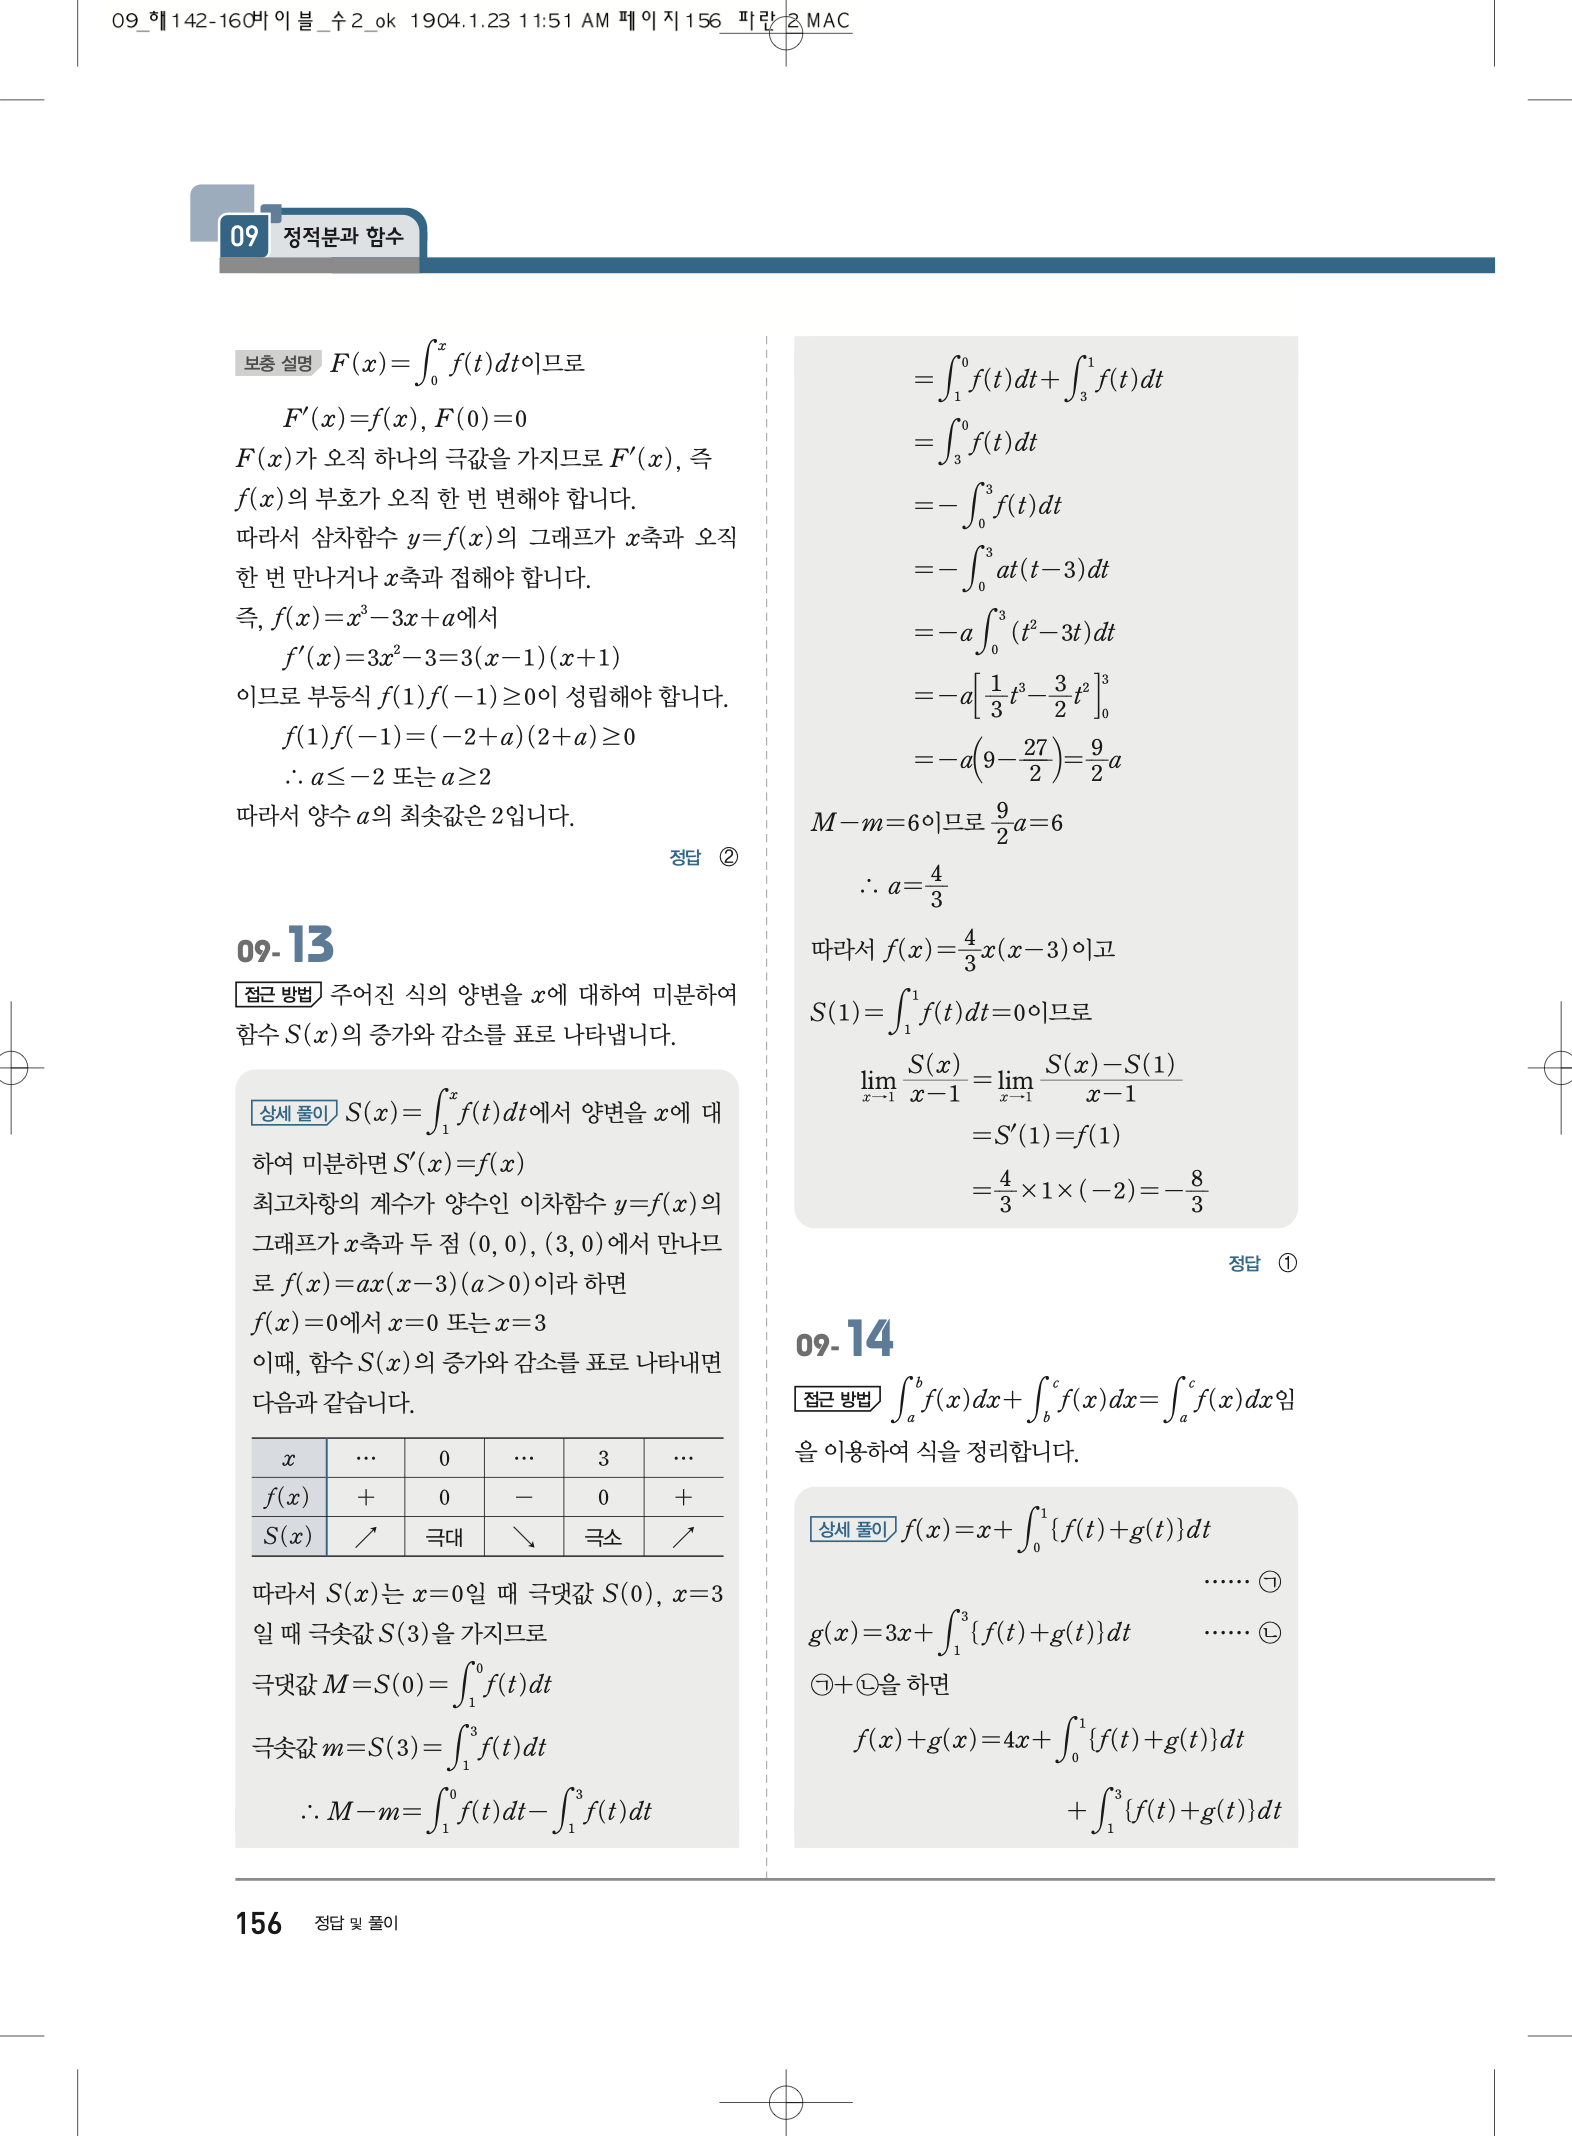 09_해142-160바이블_수2_ok 1904.1.23 11:51 AM 페이지156 파란 2 MAC
09 정적분과 함수
보충 설명 F(x)=∫₀ˣ f(t)dt이므로
F′(x)=f(x), F(0)=0
F(x)가 오직 하나의 극값을 가지므로 F′(x), 즉
f(x)의 부호가 오직 한 번 변해야 합니다.
따라서 삼차함수 y=f(x)의 그래프가 x축과 오직
한 번 만나거나 x축과 접해야 합니다.
즉, f(x)=x³-3x+a에서
f′(x)=3x²-3=3(x-1)(x+1)
이므로 부등식 f(1)f(-1)≥0이 성립해야 합니다.
f(1)f(-1)=(-2+a)(2+a)≥0
∴ a≤-2 또는 a≥2
따라서 양수 a의 최솟값은 2입니다.
정답 ②
09-13
접근 방법 주어진 식의 양변을 x에 대하여 미분하여
함수 S(x)의 증가와 감소를 표로 나타냅니다.
상세 풀이 S(x)=∫₁ˣ f(t)dt에서 양변을 x에 대
하여 미분하면 S′(x)=f(x)
최고차항의 계수가 양수인 이차함수 y=f(x)의
그래프가 x축과 두 점 (0, 0), (3, 0)에서 만나므
로 f(x)=ax(x-3)(a>0)이라 하면
f(x)=0에서 x=0 또는 x=3
이때, 함수 S(x)의 증가와 감소를 표로 나타내면
다음과 같습니다.
x … 0 … 3 …
f(x) + 0 - 0 +
S(x) ↗ 극대 ↘ 극소 ↗
따라서 S(x)는 x=0일 때 극댓값 S(0), x=3
일 때 극솟값 S(3)을 가지므로
극댓값 M=S(0)=∫₁⁰ f(t)dt
극솟값 m=S(3)=∫₁³ f(t)dt
∴ M-m=∫₁⁰ f(t)dt-∫₁³ f(t)dt
=∫₁⁰ f(t)dt+∫₃¹ f(t)dt
=∫₃⁰ f(t)dt
=-∫₀³ f(t)dt
=-∫₀³ at(t-3)dt
=-a∫₀³ (t²-3t)dt
=-a[1/3 t³-3/2 t²]₀³
=-a(9-27/2)=9/2 a
M-m=6이므로 9/2 a=6
∴ a=4/3
따라서 f(x)=4/3 x(x-3)이고
S(1)=∫₁¹ f(t)dt=0이므로
lim x→1 S(x)/(x-1) =lim x→1 (S(x)-S(1))/(x-1)
=S′(1)=f(1)
=4/3×1×(-2)=-8/3
정답 ①
09-14
접근 방법 ∫ₐᵇ f(x)dx+∫_b^c f(x)dx=∫ₐᶜ f(x)dx임
을 이용하여 식을 정리합니다.
상세 풀이 f(x)=x+∫₀¹ {f(t)+g(t)}dt
…… ㉠
g(x)=3x+∫₁³ {f(t)+g(t)}dt …… ㉡
㉠+㉡을 하면
f(x)+g(x)=4x+∫₀¹ {f(t)+g(t)}dt
+∫₁³ {f(t)+g(t)}dt
156 정답 및 풀이